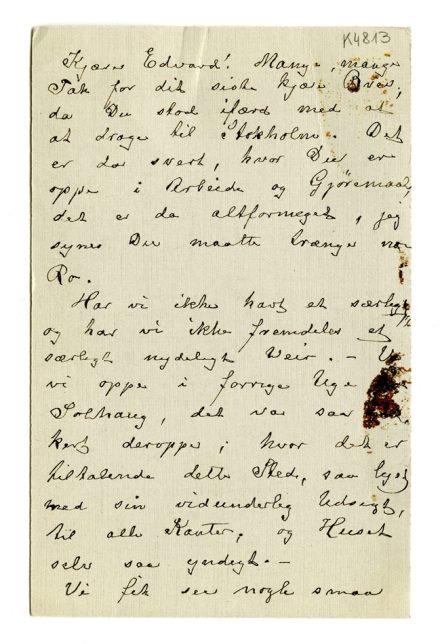 K4813
Kjære Edvard! Mange, mange
Tak for dit siste kjære Brev,
da Du stod ifærd med at
at drage til Stokholm. Det
er da svert, hvor Du er
oppe i Arbeide og Gjøremaal,
det er da altformeget, jeg
synes Du maatte trænge noe
Ro.
Har vi ikke havt et særligt
og har vi ikke fremdeles et
særligt nydeligt Veir. –
vi oppe i forrige Uge
Solhaug, det va saa
kert deroppe; hvor det er
tiltalende dette Sted, saa lyst
med sin vidunderleg Udsigt,
til alle Kanter, og Huset
selv saa yndigt. –
Vi fik see nogle smaa